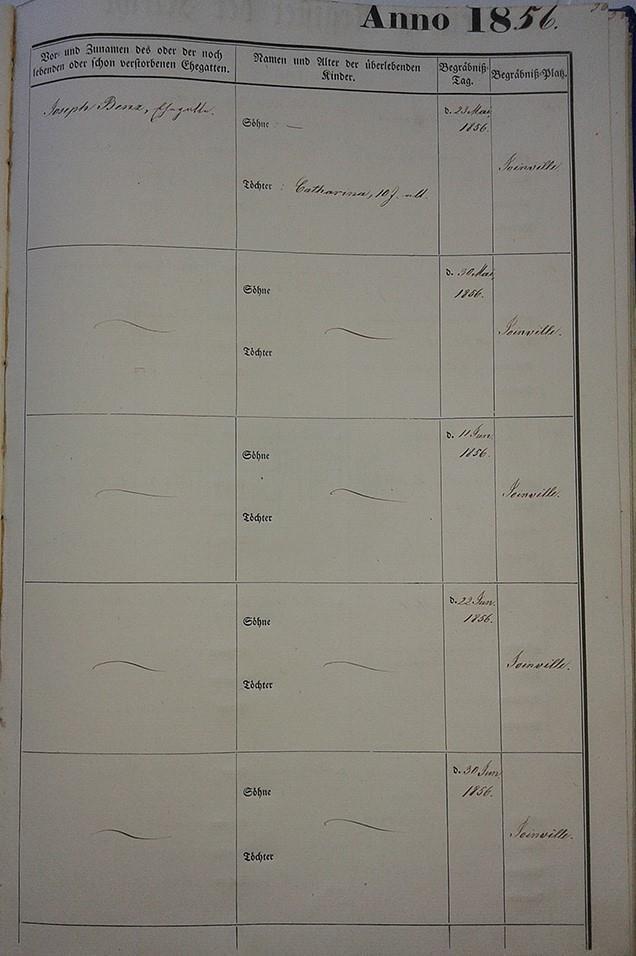 Anno 1856.
Vor- und Zunamen des oder der noch
lebenden oder schon verstorbenen Ehegatten.
Namen und Alter der überlebenden
Kinder.
Begräbniß-
Tag.
Begräbniß-Platz.
Joseph Benz, Ehegatte.
Söhne —
Töchter : Catharina, 10 J. alt.
d. 23 Mai
1856.
Joinville.
Söhne
Töchter
d. 30 Mai
1856.
Joinville.
Söhne
Töchter
d. 11 Jun.
1856.
Joinville.
Söhne
Töchter
d. 22 Jun.
1856.
Joinville.
Söhne
Töchter
d. 30 Jun
1856.
Joinville.